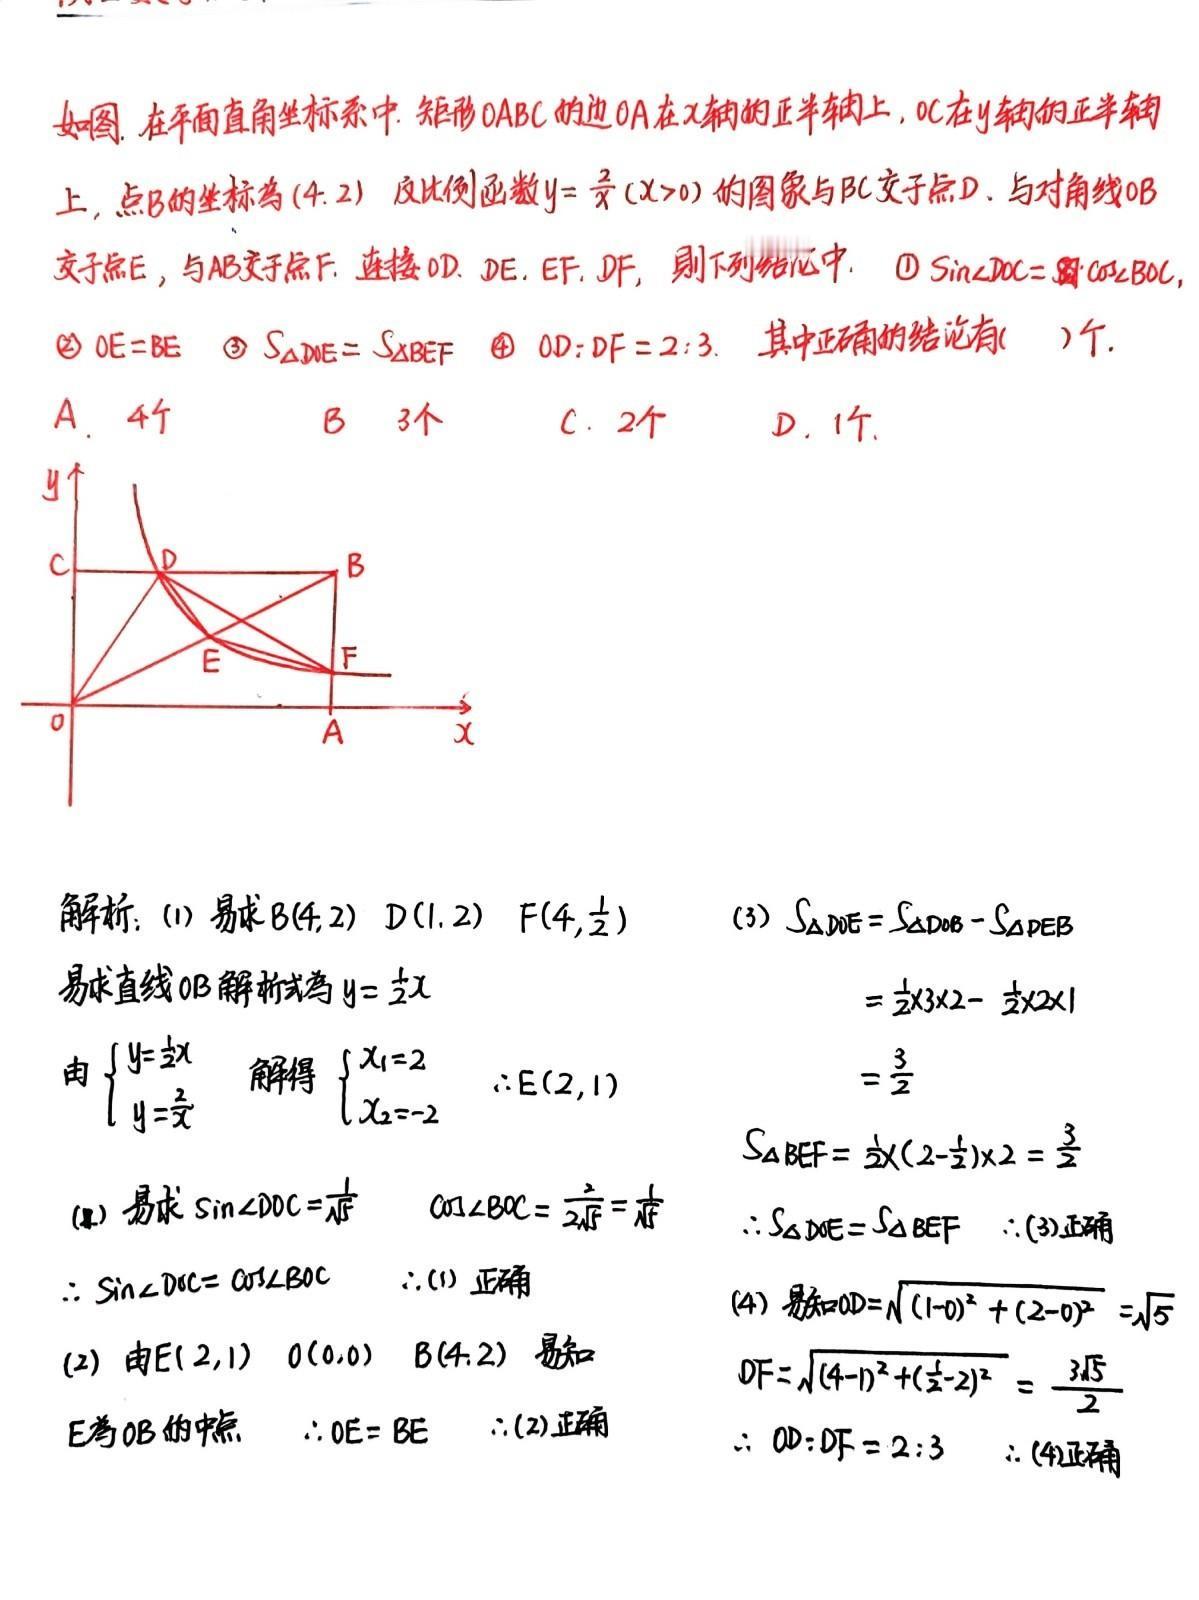 如图.在平面直角坐标系中.矩形OABC的边OA在x轴的正半轴上,OC在y轴的正半轴
上,点B的坐标為(4.2) 反比例函数y=2/x(x>0)的图象与BC交于点D.与对角线OB
交于点E,与AB交于点F.连接OD.DE.EF.DF,则下列结论中. ① Sin∠DOC=cos∠BOC,
② OE=BE ③ S△DOE=S△BEF ④ OD:DF=2:3. 其中正确的结论有( )个.
A. 4个 B 3个 C. 2个 D. 1个.
y
C D B
E F
O A x
解析:(1) 易求B(4,2) D(1.2) F(4,1/2)
易求直线OB解析式為y=1/2x
由{y=1/2x y=2/x 解得{x₁=2 x₂=-2 ∴E(2,1)
(1) 易求 Sin∠DOC=1/√5 cos∠BOC=2/2√5=1/√5
∴ Sin∠DOC=cos∠BOC ∴(1) 正确
(2) 由E(2,1) O(0,0) B(4.2) 易知
E為OB的中点 ∴OE=BE ∴(2)正确
(3) S△DOE=S△DOB-S△DEB
=1/2×3×2-1/2×2×1
=3/2
S△BEF=1/2×(2-1/2)×2=3/2
∴S△DOE=S△BEF ∴(3)正确
(4) 易知OD=√(1-0)²+(2-0)²=√5
DF=√(4-1)²+(1/2-2)²=3√5/2
∴ OD:DF=2:3 ∴(4)正确